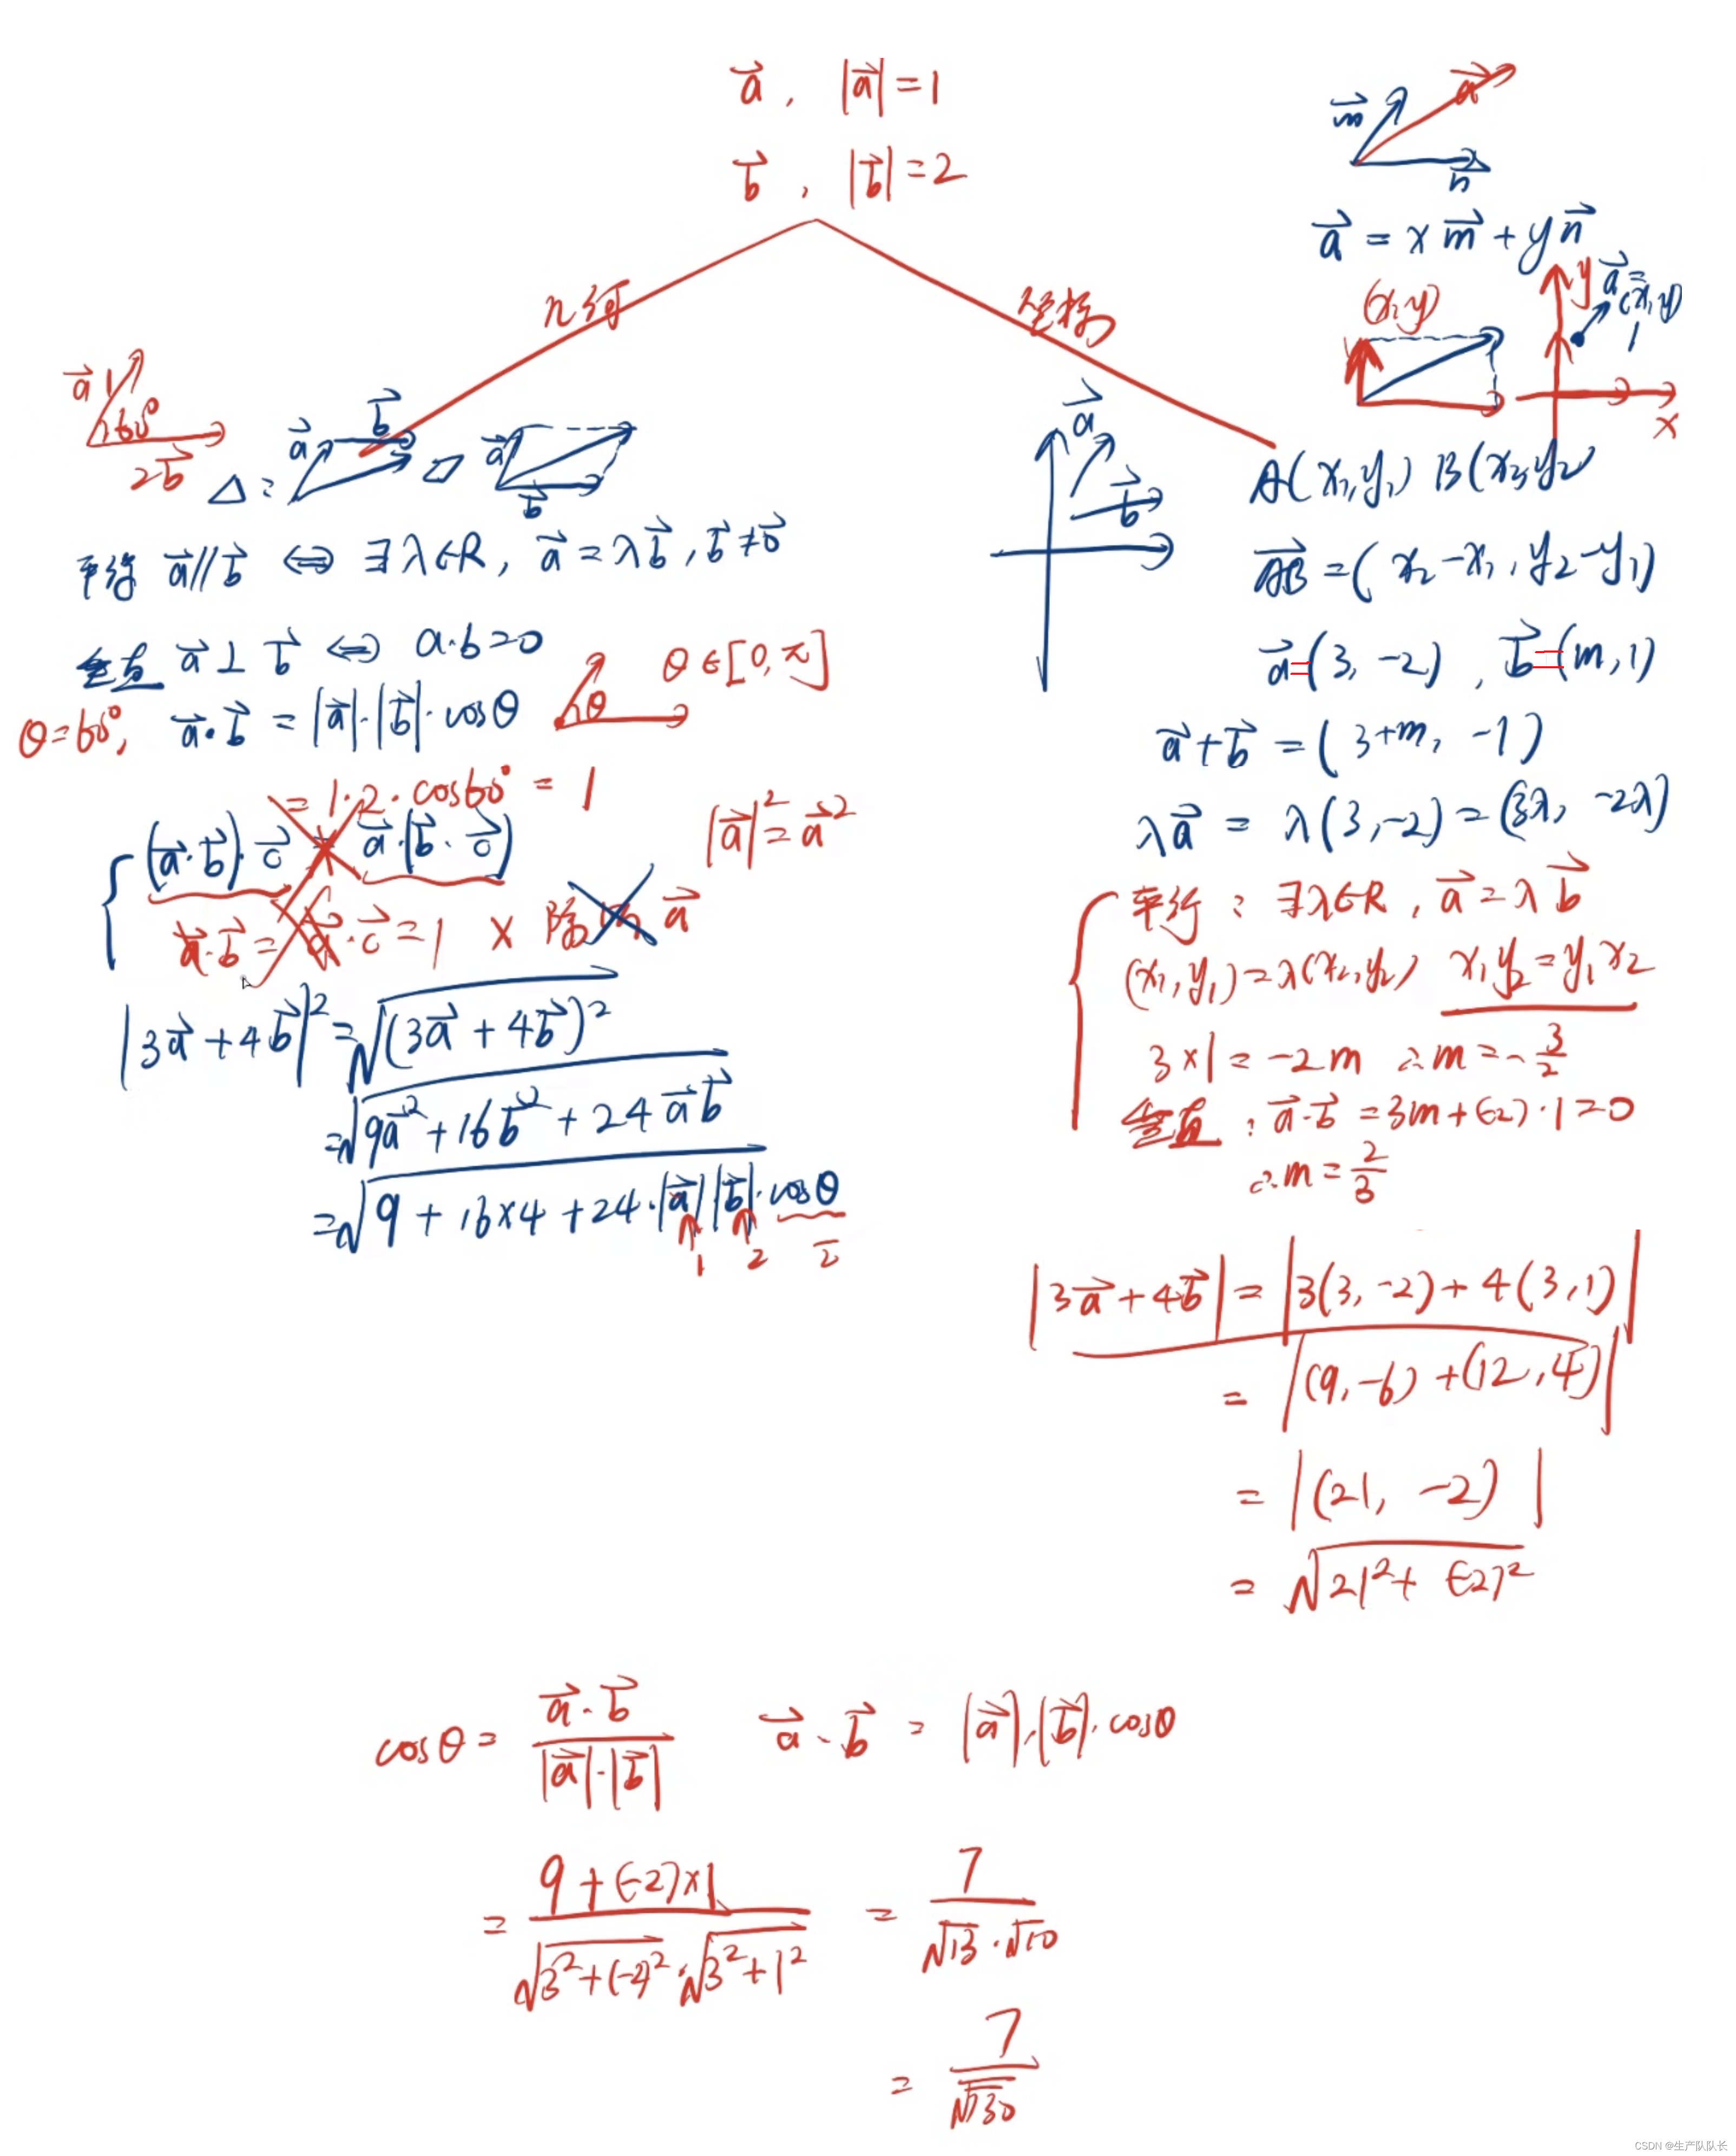 a⃗ , |a⃗|=1
b⃗ , |b⃗|=2
几何
坐标
m⃗ a⃗ n⃗
a⃗ = x m⃗ + y n⃗
(x,y) y a⃗= (x,y) 1 x
a⃗ 1 60° 2 b⃗
△: a⃗ b⃗ ▱ a⃗ b⃗
a⃗ b⃗
平行 a⃗∥b⃗ ⇔ ∃λ∈R, a⃗=λb⃗, b⃗≠0⃗
垂直 a⃗⊥b⃗ ⇔ a·b=0
θ θ∈[0,π]
θ=60°, a⃗·b⃗ = |a⃗|·|b⃗|·cosθ
= 1·2·cos60° = 1
(a⃗·b⃗)·c⃗ a⃗·(b⃗·c⃗)
|a⃗|²=a⃗²
a⃗·b⃗= a⃗·c⃗=1 × 除 a⃗
|3a⃗+4b⃗|²=√(3a⃗+4b⃗)²
=√9a⃗²+16b⃗²+24a⃗b⃗
=√9+16×4+24·|a⃗||b⃗|·cosθ
1 2 2
A(x₁,y₁) B(x₂,y₂
AB⃗=(x₂-x₁,y₂-y₁)
a⃗=(3,-2) , b⃗=(m,1)
a⃗+b⃗=(3+m,-1)
λa⃗ = λ(3,-2)=(3λ,-2λ)
平行: ∃λ∈R, a⃗=λb⃗
(x₁,y₁)=λ(x₂,y₂) x₁y₂=y₁x₂
3×1=-2m ∴m=-3/2
垂直: a⃗·b⃗=3m+(-2)·1=0
∴m=2/3
|3a⃗+4b⃗|=|3(3,-2)+4(3,1)|
=|(9,-6)+(12,4)|
=|(21,-2)|
=√21²+(-2)²
cosθ= a⃗·b⃗/|a⃗|·|b⃗| a⃗·b⃗ = |a⃗|·|b⃗|·cosθ
= 9+(-2)×1/√3²+(-2)²·√3²+1² = 7/√13·√10
= 7/√130
CSDN @生产队队长